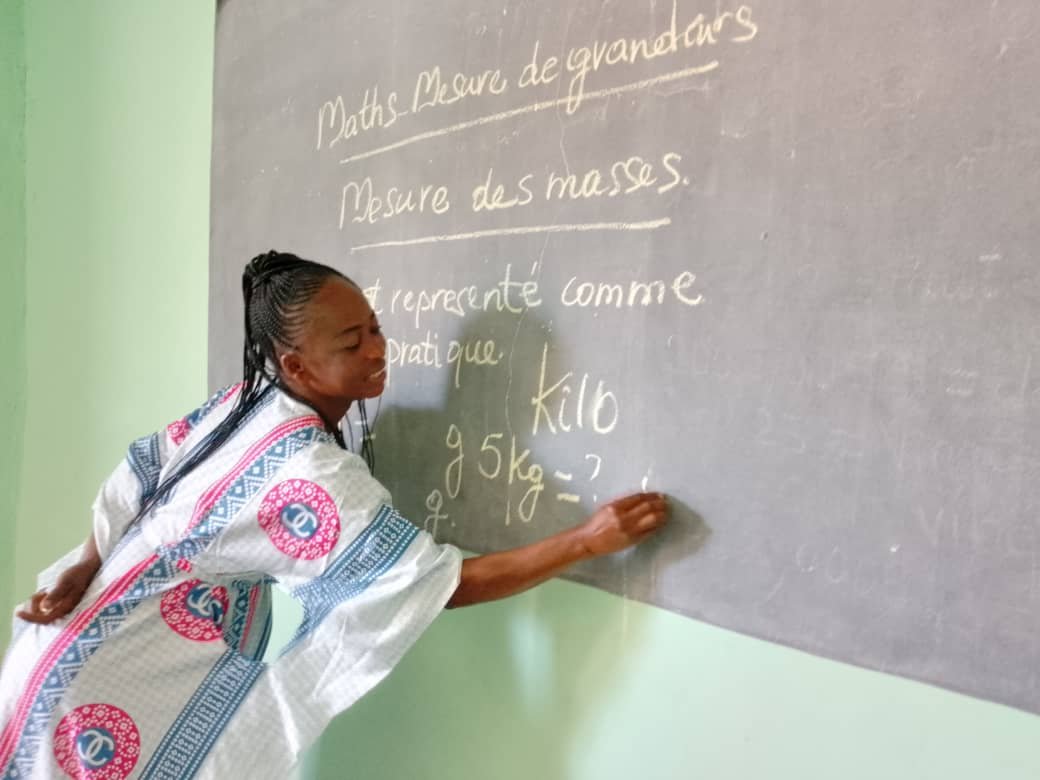 Maths-Mesure de grandeurs
Mesure des masses.
représenté comme
pratique.
Kilo
g 5kg = ?
g.